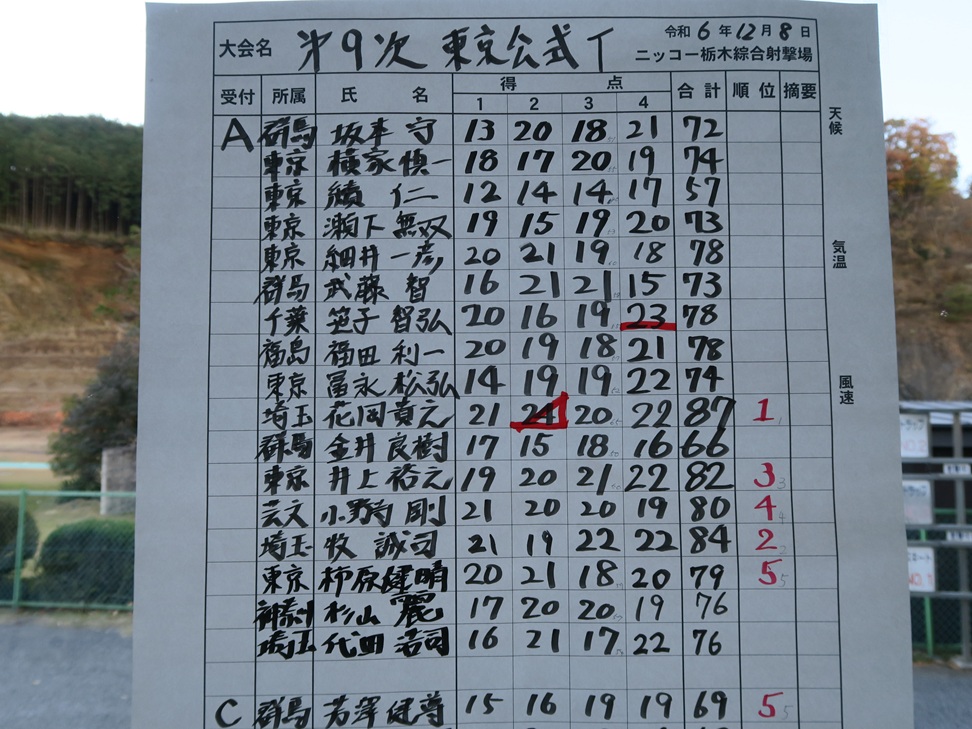 大会名 第9次 東京公式T 令和6年12月8日
ニッコー栃木綜合射撃場
受付 所属 氏名 得点 合計 順位 摘要
1 2 3 4
天候
気温
風速
A 群馬 坂本 守 13 20 18 21 72
東京 横家 慎一 18 17 20 19 74
東京 續 仁一 12 14 14 17 57
東京 瀬下 無双 19 15 19 20 73
東京 細井 一彦 20 21 19 18 78
群馬 武藤 智 16 21 21 15 73
千葉 笹子 智弘 20 16 19 23 78
福島 福田 利一 20 19 18 21 78
東京 冨永 松弘 14 19 19 22 74
埼玉 花岡 貢元 21 24 20 22 87 1
群馬 金井 良樹 17 15 18 16 66
東京 井上 裕元 19 20 21 22 82 3
芸文 小野寺 剛 21 20 20 19 80 4
埼玉 牧 誠司 21 19 22 22 84 2
東京 柿原 健晴 20 21 18 20 79 5
神奈川 杉山 麗 17 20 20 19 76
埼玉 代田 浩司 16 21 17 22 76
C 群馬 芳澤 健尊 15 16 19 19 69 5